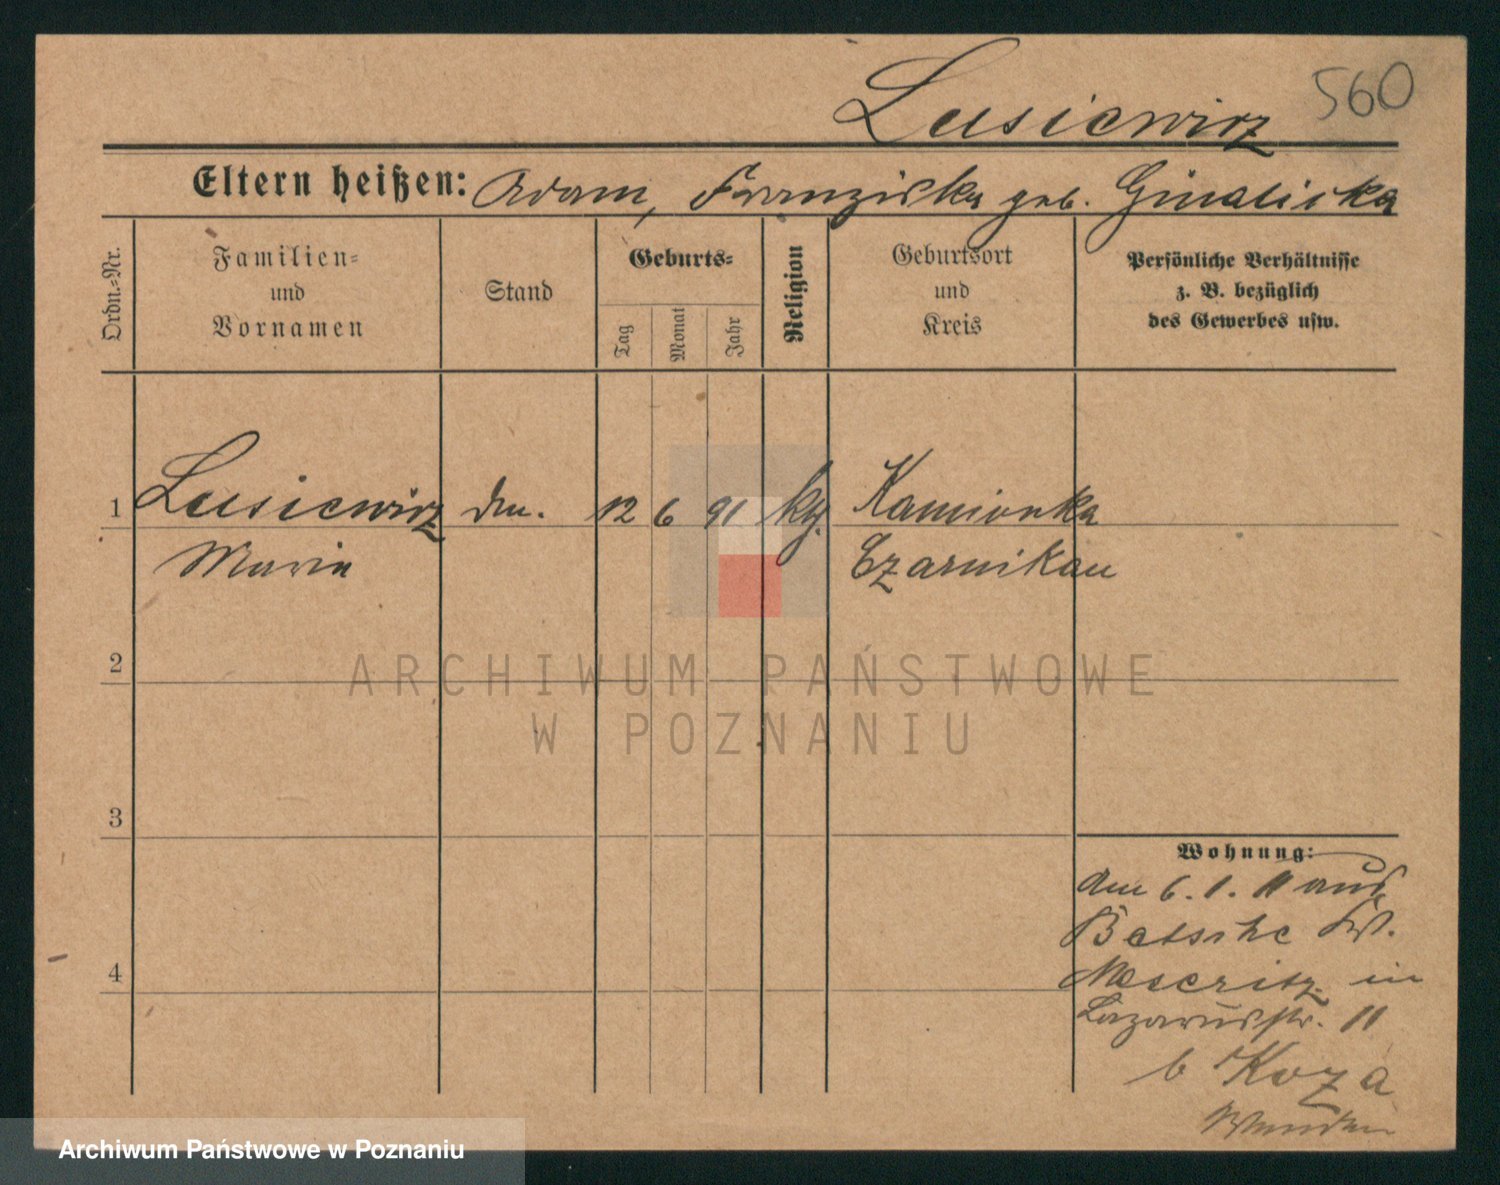 560
Lusiewicz
Eltern heißen: Adam, Franziska geb.
Ordn.-Nr.
Familien-
und
Vornamen
Stand
Geburts-
Tag
Monat
Jahr
Religion
Geburtsort
und
Kreis
Persönliche Verhältnisse
z. B. bezüglich
des Gewerbes usw.
1 Lusiewicz 12 6 91 Kamionka
Maria Czarnikau
2
3
4
Wohnung:
am 6. 1. 11 aus
Betsche Kr.
Meseritz in
Lazarusstr. 11
b Koza
ARCHIWUM PAŃSTWOWE
W POZNANIU
Archiwum Państwowe w Poznaniu